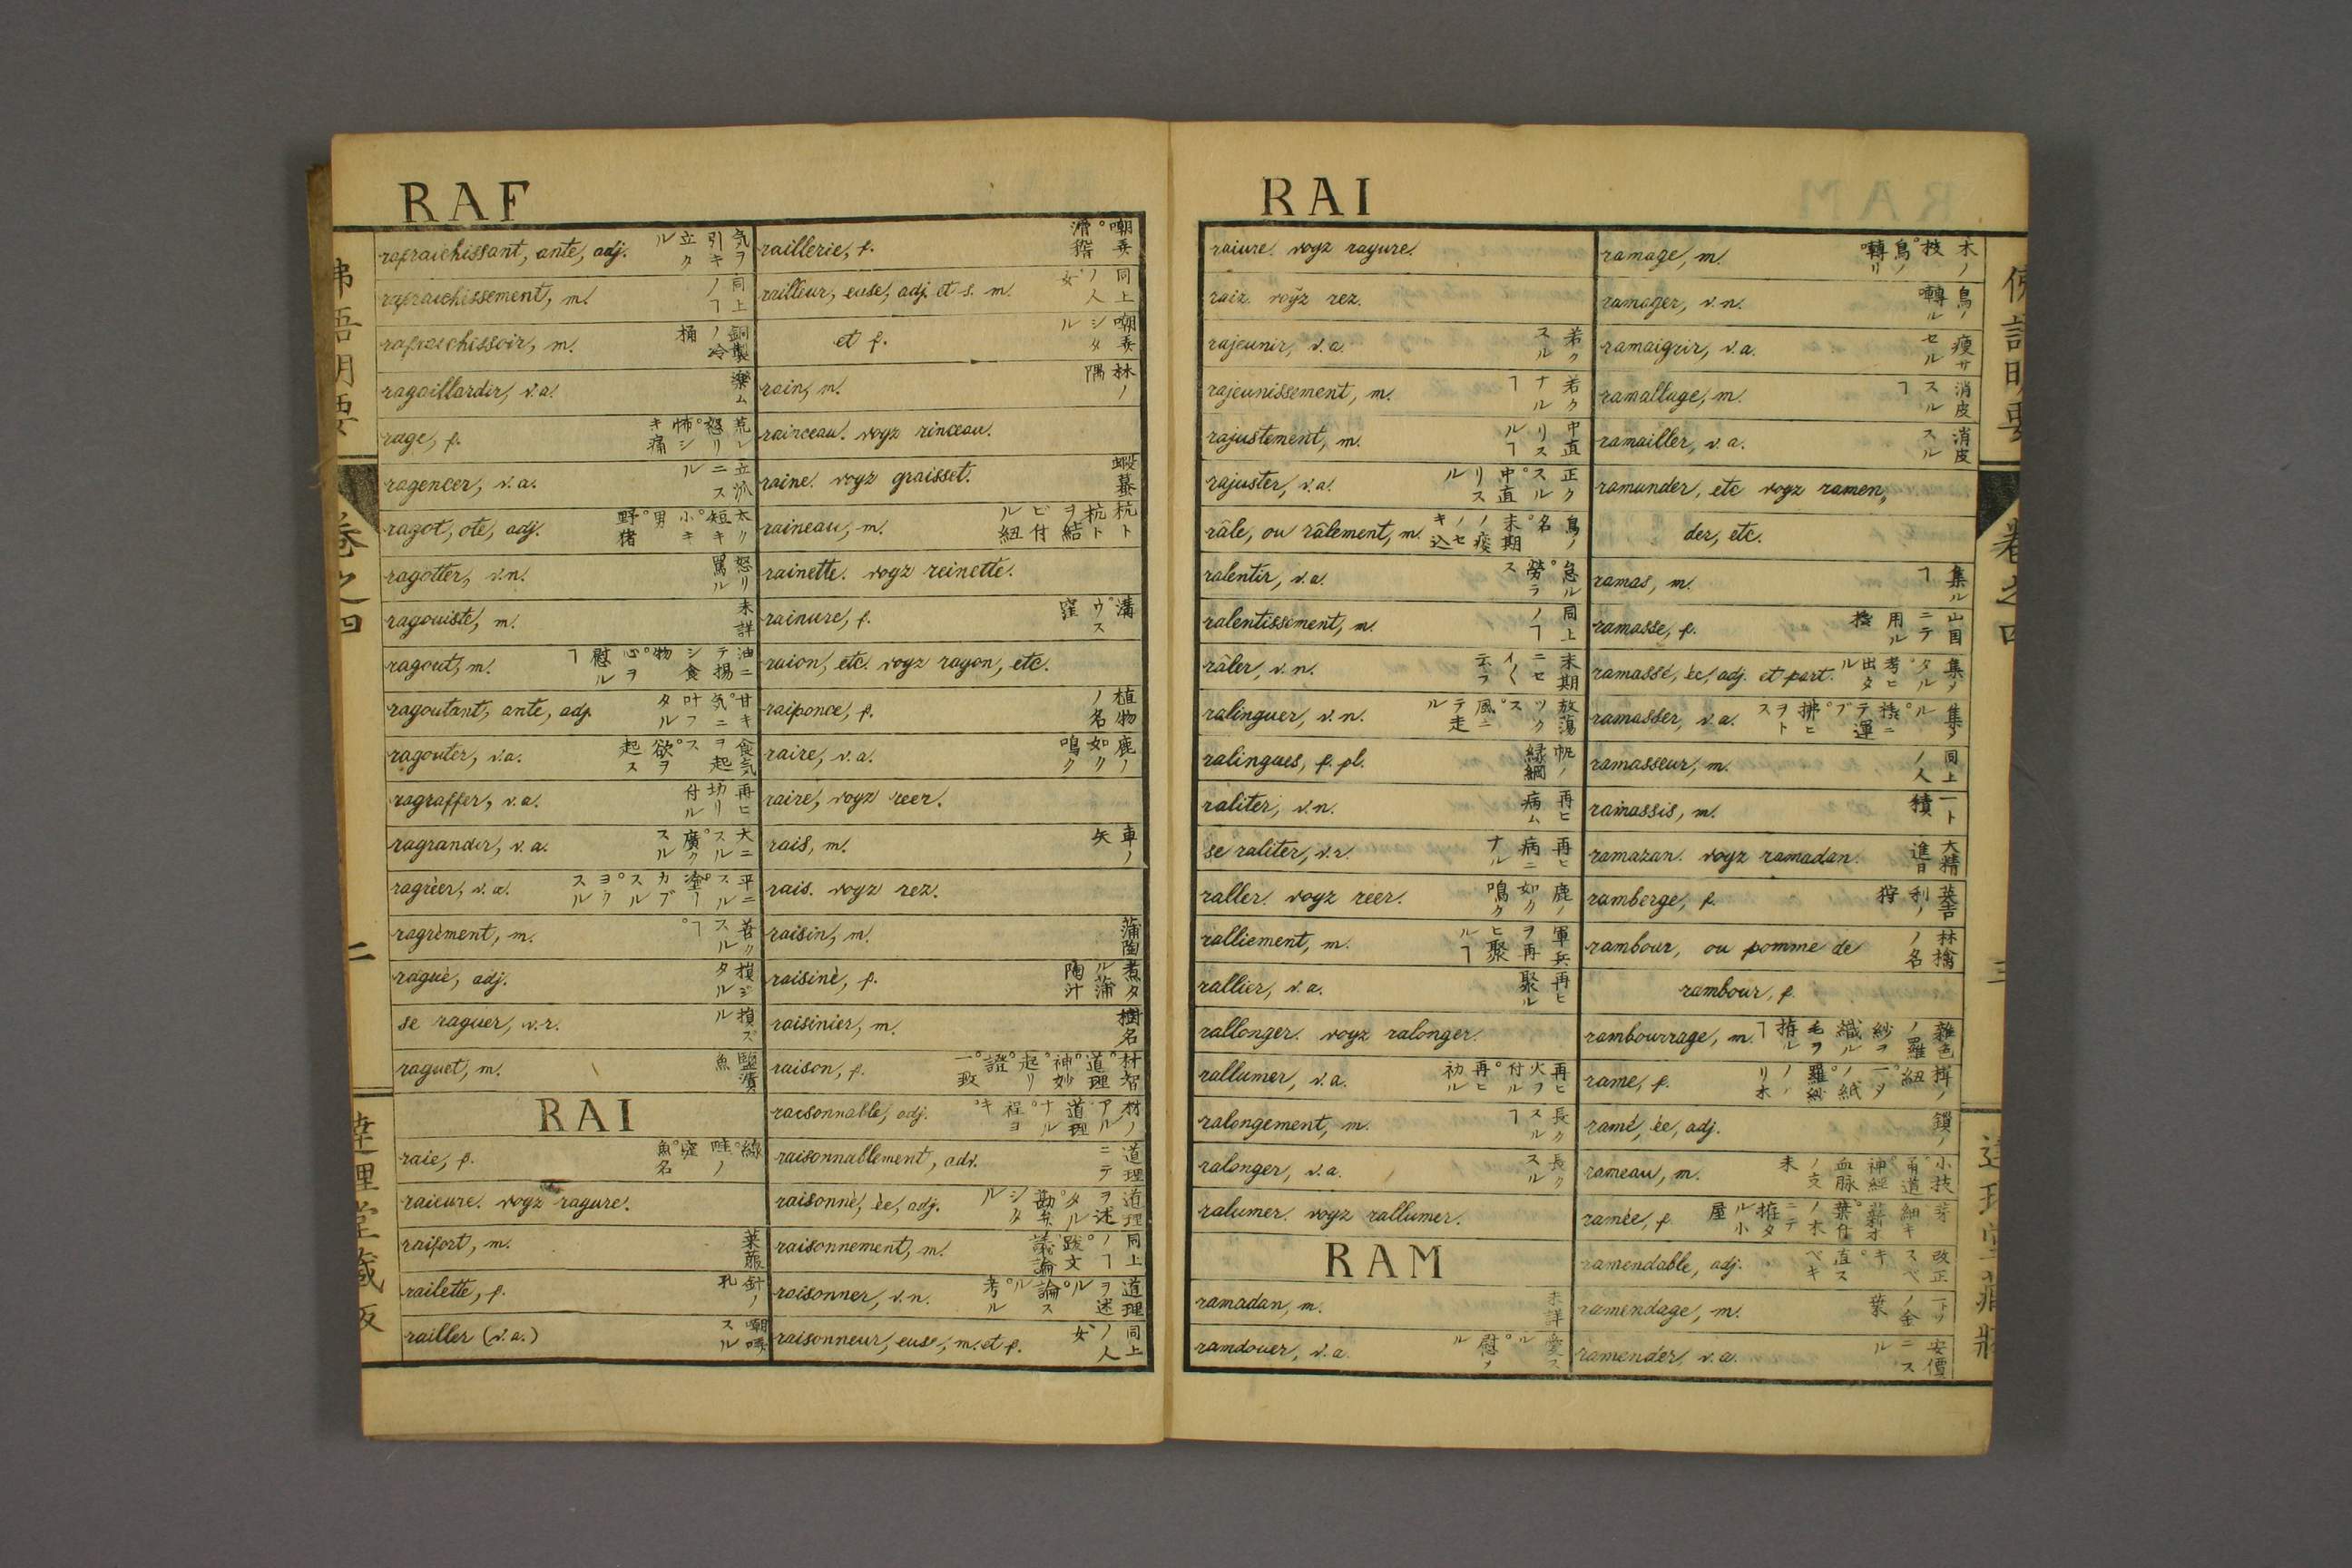 RAF
rafraichissant, ante, adj. 気ヲ引キ立クル
rafraichissement, m. 同上ノヿ
rafraichissoir, m. 銅製ノ冷桶
ragaillardir, v.a. 楽ム
rage, f. 荒レ怒リ。怖シキ痛
ragencer, v.a. 立派ニスル
ragot, ote, adj. 太ク短キ。小キ男。野猪
ragotter, v.n. 怒リ罵ル
ragouiste, m. 未詳
ragout, m. 油ニテ揚シ食物。心ヲ慰ルヿ
ragoutant, ante, adj. 甘キ。気ニ叶フタル
ragouter, v.a. 食気ヲ起ス。欲ヲ起ス
ragraffer, v.a. 再ヒ切リ付ル
ragrandir, v.a. 大ニスル。廣クスル
ragréer, v.a. 平ニスル
ragrément, m. 善クスルヿ。
ragué, adj. 損ジタル
se raguer, v.r. 損ズル
raguet, m. 塩漬魚
RAI
raie, f. 線。畦ノ窪。魚名
raieure. voyz ragure.
raifort, m. 莱菔
railette, f. 針ノ孔
railler (v.a.) 嘲哢スル
raillerie, f. 嘲弄。滑稽
railleur, euse, adj. et s. m. 同上ノ人女
et f. 嘲弄シタル
rain, m. 林ノ隅
rainceau. voyz rinceau.
raine. voyz graisset. 蝦蟇
raineau, m. 杭ト杭トヲ結ビ付ル紐
rainette. voyz reinette.
rainure, f. 溝。ウス窪
raion, etc. voyz rayon, etc.
raiponce, f. 植物ノ名
raire, v.a. 鹿ノ如ク鳴ク
raire, voyz reer.
rais, m. 車ノ矢
rais. voyz rez.
raisin, m. 蒲陶
raisiné, f. 煮タル蒲陶汁
raisinier, m. 樹名
raison, f. 材智。道理。神妙。起リ。證。一致
raisonnable, adj. 材ノアル。道理ナル。程ヨキ。
raisonnablement, adv. 道理ニテ
raisonné, ée, adj. 道理ヲ述タル。勘弁シタル
raisonnement, m. 同上ノヿ。跋文。議論
raisonner, v.n. 道理ヲ述ル。論スル。考ル
raisonneur, euse, m. et f. 同上ノ人女
二
RAI
raiure. voyz rayure.
raiz. voyz rez.
rajeunir, v.a. 若クスル
rajeunissement, m. 若クナルヿ
rajustement, m. 中直リスルヿ
rajuster, v.a. 正クスル。中直リスル
râle, ou râlement, m. 鳥ノ名。末期ノ痰ノセキ込
ralentir, v.a. 怠ル。勞ラス
ralentissement, m. 同上ノヿ
râler, v.n. 末期ニセイ〱云フ
ralinguer, v.n. 放蕩ツクス。風ニテ走ル
ralingues, f. pl. 帆ノ縁綱
raliter, v.n. 再ヒ病ム
se raliter, v.r. 再ヒ病ニナル
raller. voyz reer. 鹿ノ如ク鳴ク
ralliement, m. 軍兵ヲ再ヒ聚ルヿ
rallier, v.a. 再ヒ聚ル
rallonger. voyz ralonger.
rallumer, v.a. 再ヒ火ヲ付ル。再ヒ初ル
ralongement, m. 長クスルヿ
ralonger, v.a. 長クスル
ralumer. voyz rallumer.
RAM
ramadan, m. 未詳
ramdouer, v.a. 愛スル。慰ル
ramage, m. 木ノ枝。鳥ノ囀リ
ramager, v.n. 鳥ノ囀ル
ramaigrir, v.a. 瘦サセル
ramallage, m. 消皮スルヿ
ramailler, v.a. 消皮スル
ramander, etc voyz ramen,
der, etc.
ramas, m. 集ルヿ
ramasse, f. 山国ニテ用ル
ramassé, ée, adj. et part. 集メタル。考ヒ出タル
ramasser, v.a. 集メル
ramasseur, m. 同上ノ人
ramassis, m. 一ト積
ramazan. voyz ramadan. 大精進日
ramberge, f. 英吉利ノ
rambour, ou pomme de 林檎ノ名
rambour, f.
rambourrage, m. 雑色ノ羅紗ヲ織ル毛ヲ
rame, f.
ramé, ée, adj.
rameau, m. 小枝。甬道。神経血脉ノ支末
ramée, f.
ramendable, adj. 改正スベキ。直スベキ
ramendage, m. 一トツノ金葉
ramender, v.a. 安價ニスル
卷之四
三